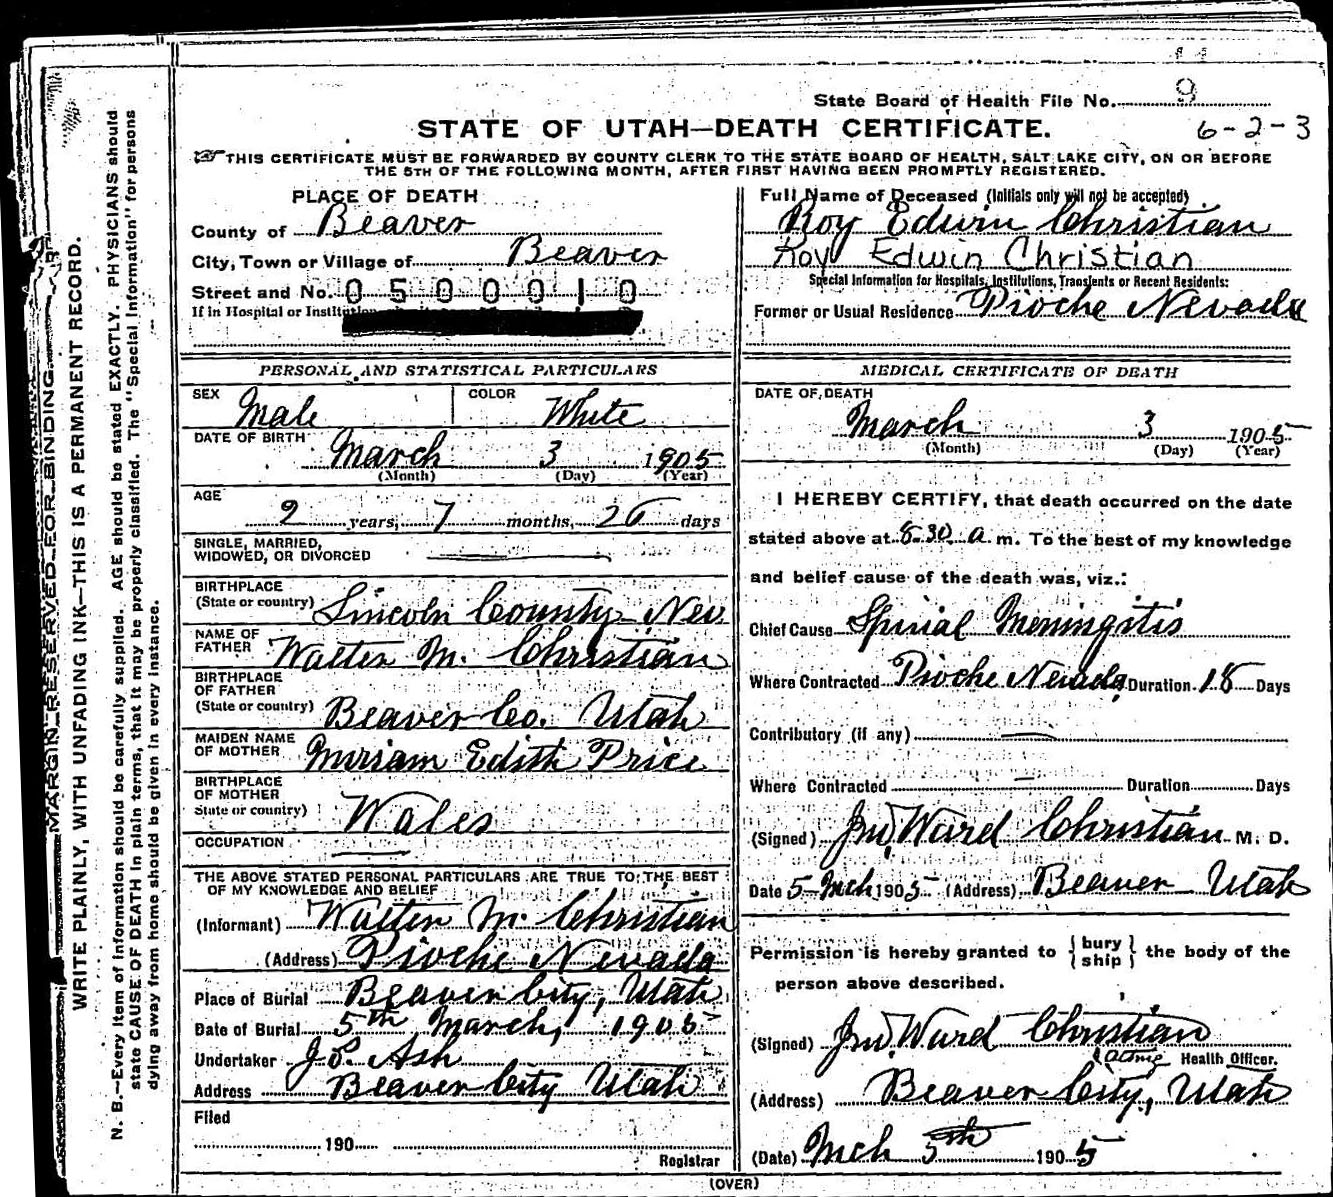 State Board of Health File No. 9
STATE OF UTAH—DEATH CERTIFICATE.
6-2-3
THIS CERTIFICATE MUST BE FORWARDED BY COUNTY CLERK TO THE STATE BOARD OF HEALTH, SALT LAKE CITY, ON OR BEFORE
THE 5TH OF THE FOLLOWING MONTH, AFTER FIRST HAVING BEEN PROMPTLY REGISTERED.
PLACE OF DEATH
County of Beaver
City, Town or Village of Beaver
Street and No. 0500010
If in Hospital or Institution
Full Name of Deceased (Initials only will not be accepted)
Roy Edwin Christian
Roy Edwin Christian
Special Information for Hospitals, Institutions, Transients or Recent Residents:
Former or Usual Residence Pioche Nevada
PERSONAL AND STATISTICAL PARTICULARS
SEX Male COLOR White
DATE OF BIRTH March 3 1905
(Month) (Day) (Year)
AGE 2 years, 7 months, 26 days
SINGLE, MARRIED,
WIDOWED, OR DIVORCED
BIRTHPLACE
(State or country) Lincoln County Nev.
NAME OF
FATHER Walter M. Christian
BIRTHPLACE
OF FATHER
(State or country) Beaver Co. Utah
MAIDEN NAME
OF MOTHER Miriam Edith Price
BIRTHPLACE
OF MOTHER
State or country) Wales
OCCUPATION
THE ABOVE STATED PERSONAL PARTICULARS ARE TRUE TO THE BEST
OF MY KNOWLEDGE AND BELIEF
(Informant) Walter M. Christian
(Address) Pioche Nevada
Place of Burial Beaver City, Utah
Date of Burial 5th March, 1905
Undertaker J. P. Ash
Address Beaver City Utah
Filed
190
Registrar
MEDICAL CERTIFICATE OF DEATH
DATE OF DEATH
March 3 1905
(Month) (Day) (Year)
I HEREBY CERTIFY, that death occurred on the date
stated above at 8.30 a m. To the best of my knowledge
and belief cause of the death was, viz.:
Chief Cause Spinal Meningitis
Where Contracted Pioche Nevada Duration 18 Days
Contributory (if any)
Where Contracted Duration Days
(Signed) Jno. Ward Christian M. D.
Date 5 Mch 1905 (Address) Beaver Utah
Permission is hereby granted to { bury
ship } the body of the
person above described.
(Signed) Jno. Ward Christian
acting Health Officer.
(Address) Beaver City, Utah
(Date) Mch 5th 1905
(OVER)
MARGIN RESERVED FOR BINDING.
WRITE PLAINLY, WITH UNFADING INK—THIS IS A PERMANENT RECORD.
N. B.—Every item of information should be carefully supplied. AGE should be stated EXACTLY. PHYSICIANS should
state CAUSE OF DEATH in plain terms, that it may be properly classified. The "Special Information" for persons
dying away from home should be given in every instance.